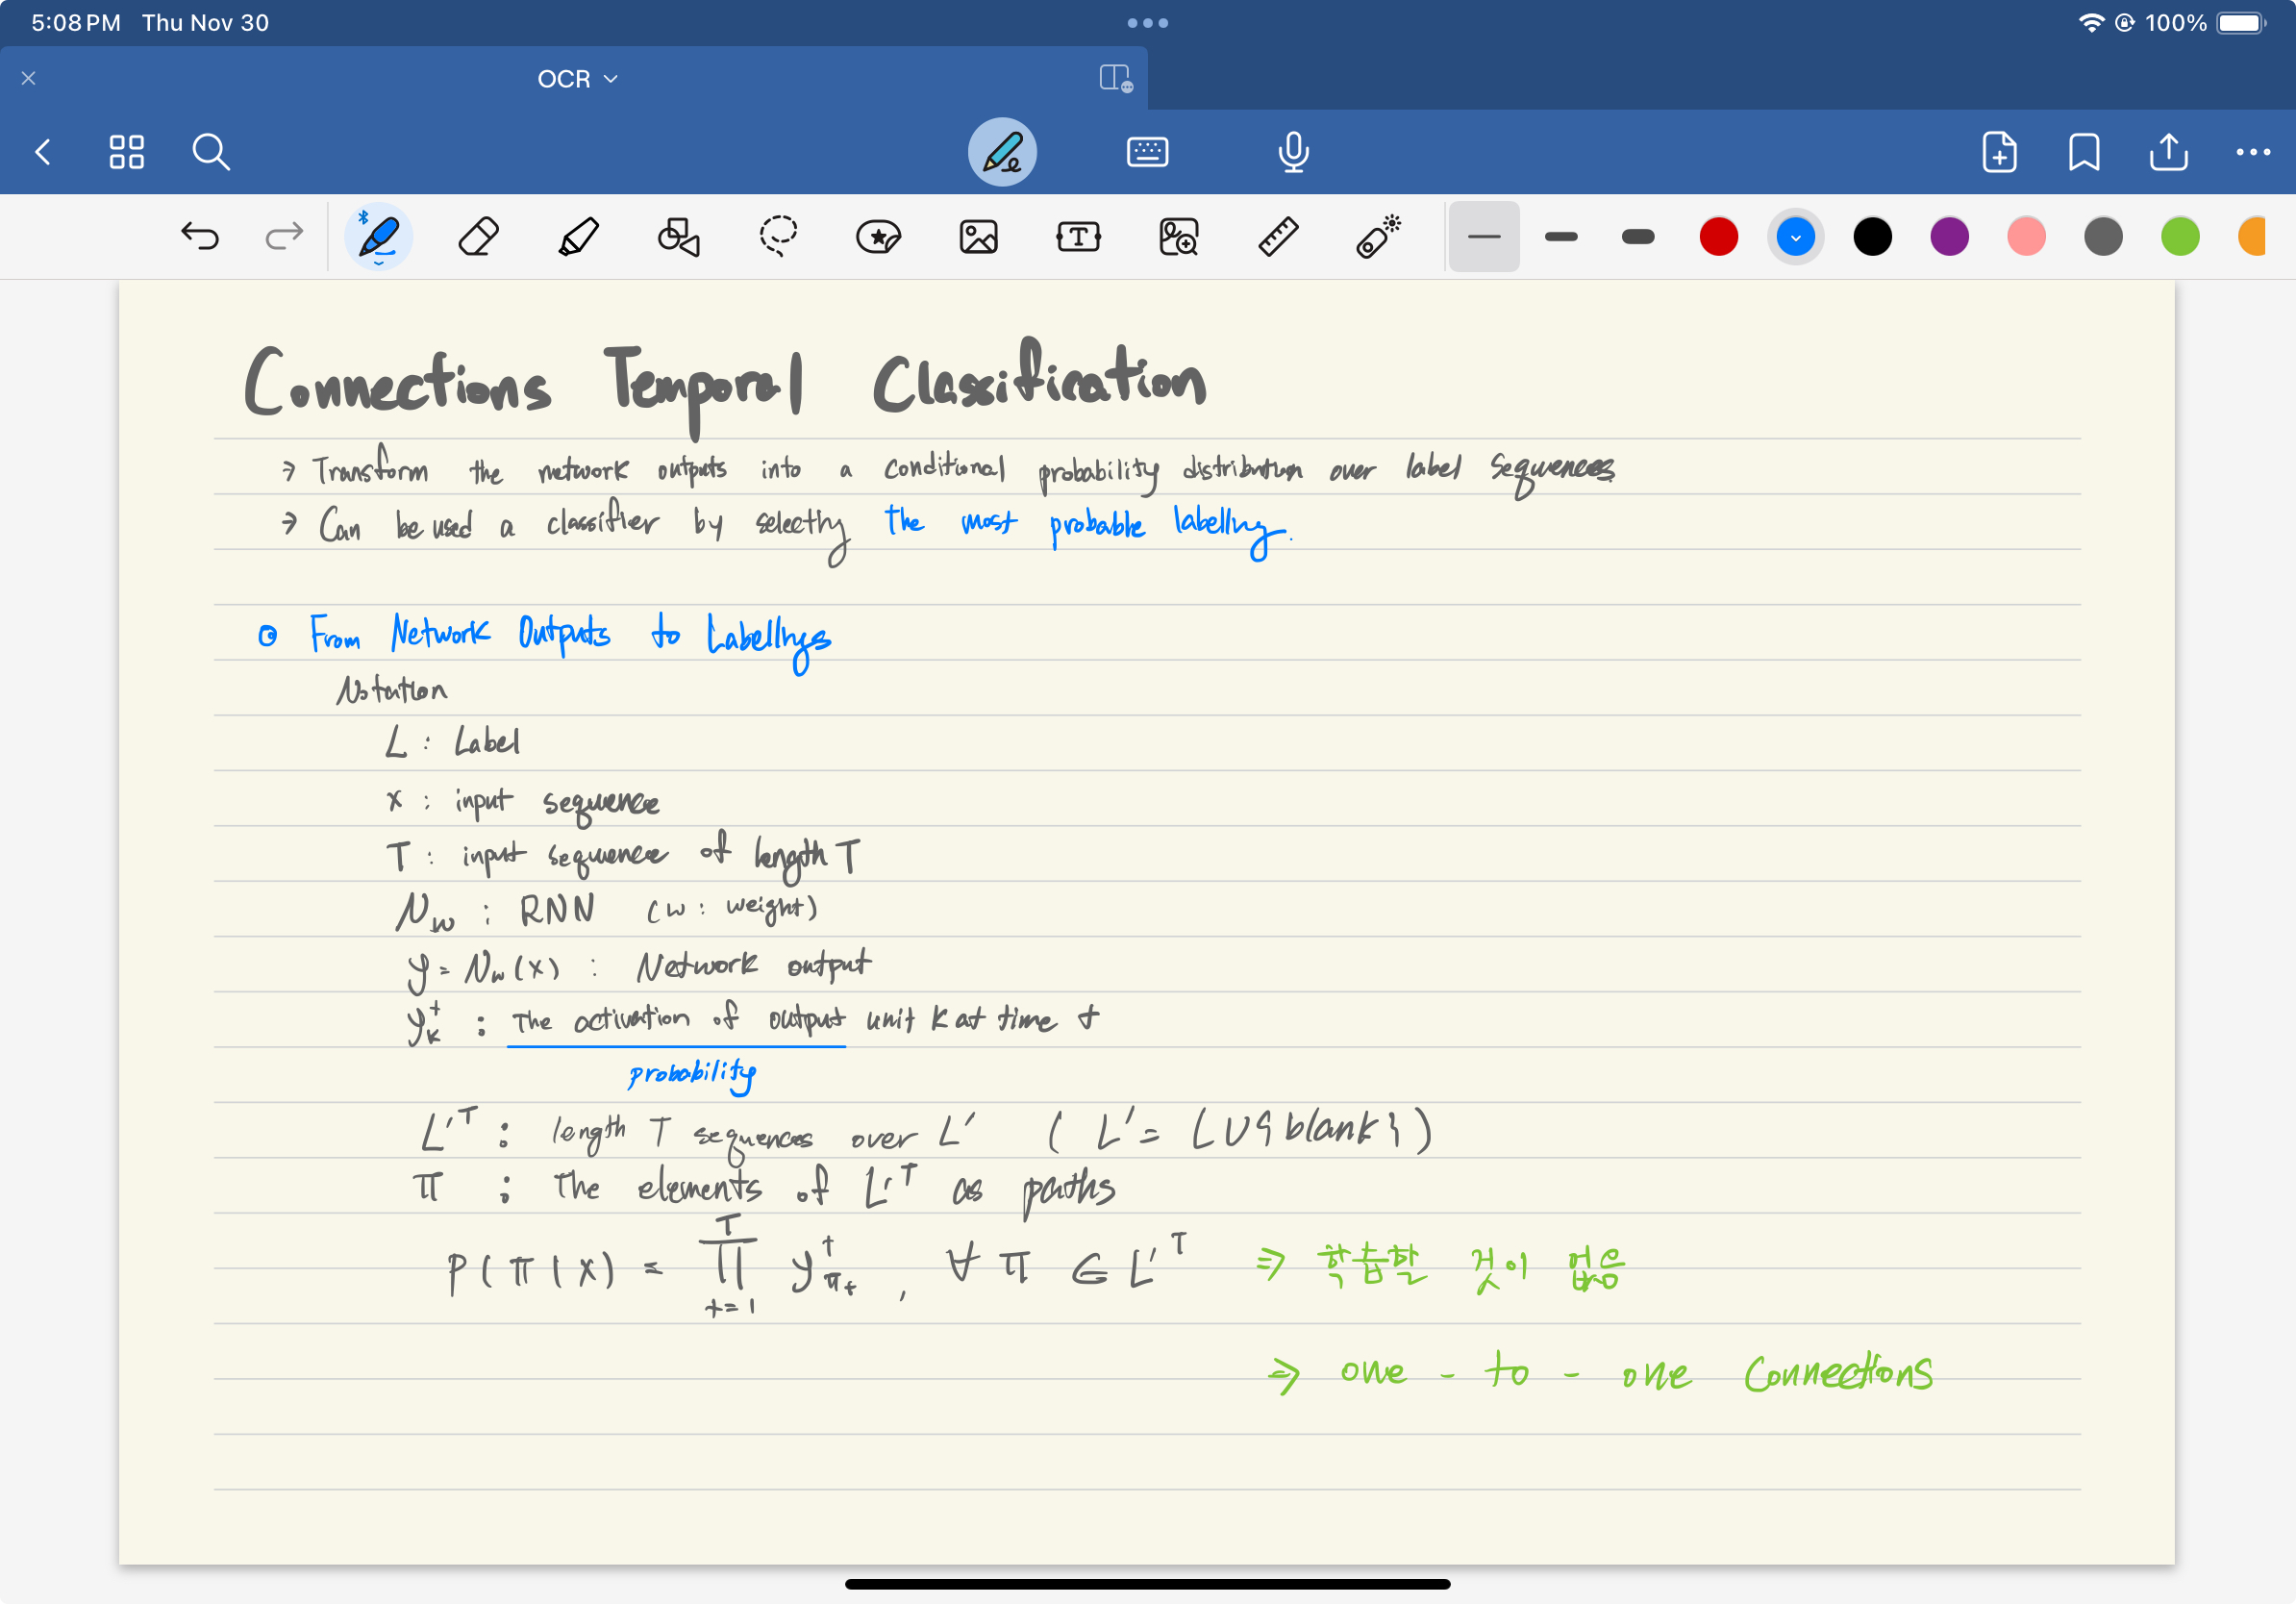 5:08 PM Thu Nov 30 100%
OCR
Connections Temporal Classification
⇒ Transform the network outputs into a conditional probability distribution over label sequences
⇒ Can be used a classifier by selecting the most probable labelling.
⊙ From Network Outputs to Labellings
Notation
L : Label
x : input sequence
T : input sequence of length T
N_w : RNN (w : weight)
y = N_w(x) : Network output
y_k^t : The activation of output unit k at time t
probability
L'^T : length T sequences over L' ( L' = L ∪ {blank} )
π : the elements of L'^T as paths
P(π|x) = ∏_{t=1}^{T} y_{π_t}^t , ∀ π ∈ L'^T ⇒ 학습할 것이 없음
⇒ one - to - one Connections